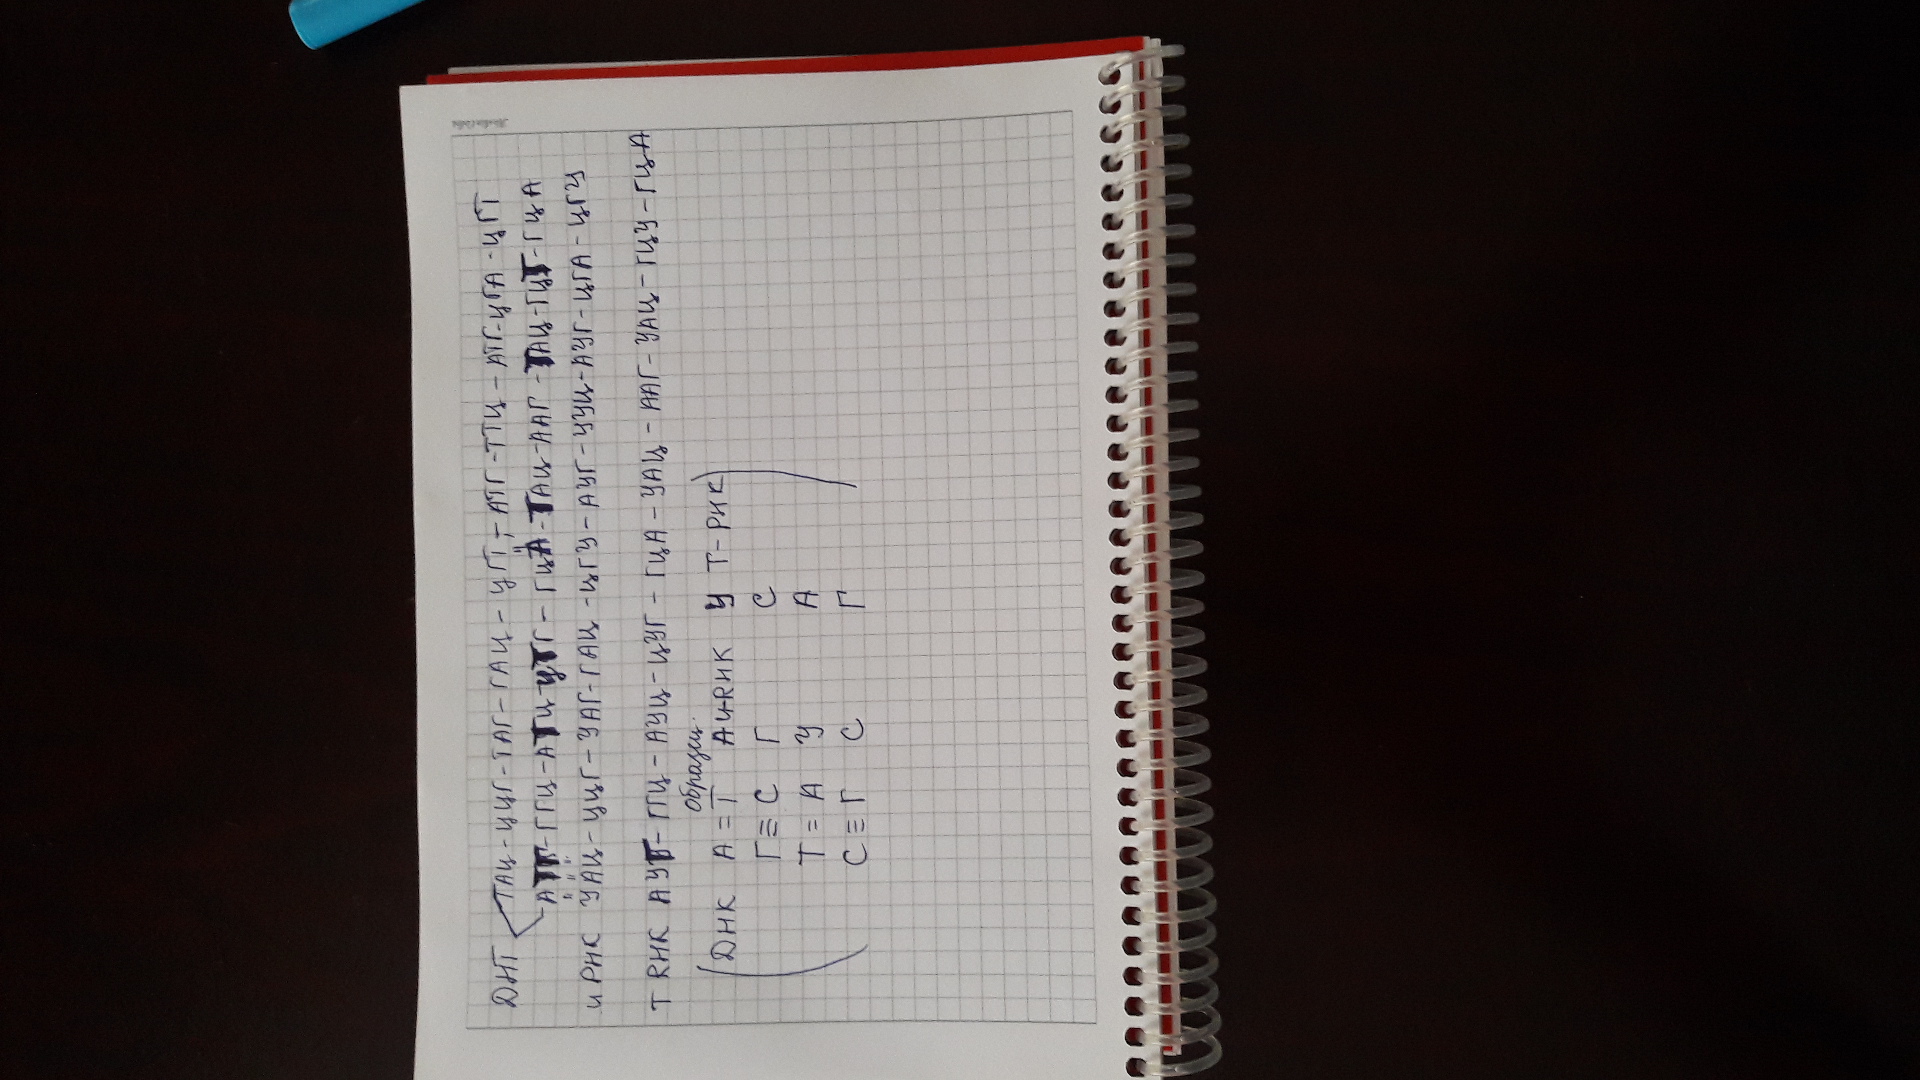 ДНТ ТАЦ-ЦЦГ-ТАГ-ГАЦ-ЦГТ-АТГ-ТТЦ-АТГ-ЦГА-ЦГТ
-АТГ-ГГЦ-АТЦ-ЦТГ-ГЦА-ТАЦ-ААГ-ТАЦ-ГЦТ-ГЦА
иРНК УАЦ-ЦЦГ-УАГ-ГАЦ-ЦГУ-АУГ-УУЦ-АУГ-ЦГА-ЦГУ
Т RНК АУГ-ГГЦ-АУЦ-ЦУГ-ГЦА-УАЦ-ААГ-УАЦ-ГЦУ-ГЦА
образец.
(ДНК А=Т А и-RНК У Т-РНК)
Г≡С Г С
Т=А У А
С≡Г С Г